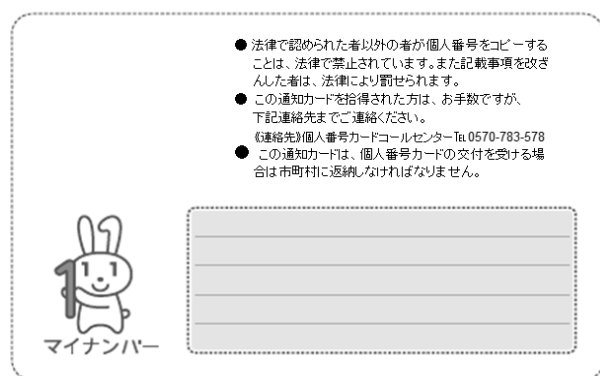 ● 法律で認められた者以外の者が個人番号をコピーする
ことは、法律で禁止されています。また記載事項を改ざ
んした者は、法律により罰せられます。
● この通知カードを拾得された方は、お手数ですが、
下記連絡先までご連絡ください。
《連絡先》個人番号カードコールセンター℡ 0570-783-578
● この通知カードは、個人番号カードの交付を受ける場
合は市町村に返納しなければなりません。
1
マイナンバー